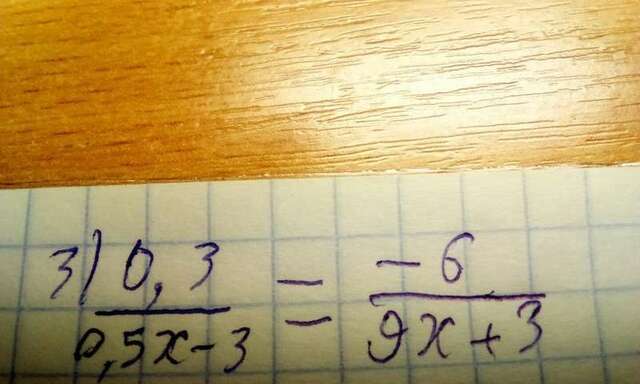 3) 0,3 / 0,5x-3 = -6 / 9x+3